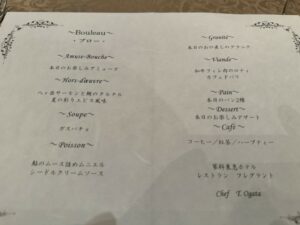 ~Bouleau~
・ブロー・
~Amuse-Bouche~
本日のお楽しみアミューズ
~Hors-d'œuvre~
ペッ会サーモンと鯛のタルタル
夏の彩りエピス風味
~Soupe~
ガスパチョ
~Poisson~
鮎のムース詰めムニエル
シードルクリームソース
~Granité~
本日のお口直しのグラニテ
~Viande~
和牛フィレ肉のロティ
カフェドパリ
~Pain~
本日のパン2種
~Dessert~
本日のお楽しみデザート
~Café~
コーヒー/紅茶/ハーブティー
蓼科東急ホテル
レストラン フレグラント
Chef T. Ogata